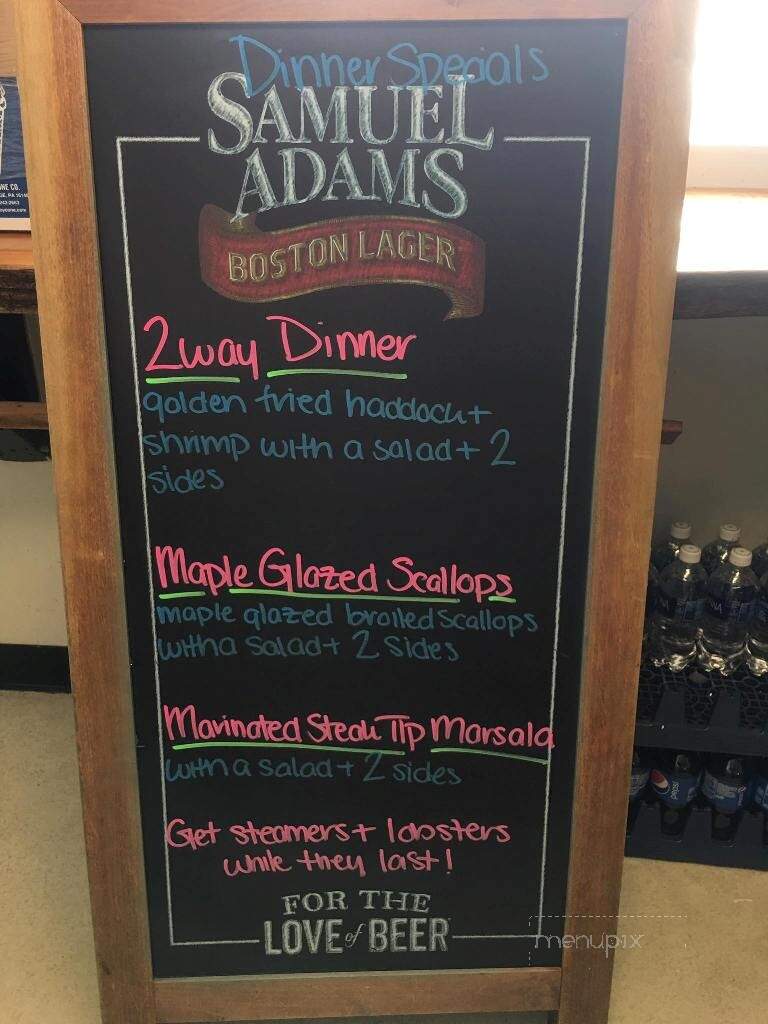 Dinner Specials
SAMUEL
ADAMS
BOSTON LAGER
2way Dinner
golden fried haddock +
shrimp with a salad + 2
sides
Maple Glazed Scallops
maple glazed broiled scallops
with a salad + 2 sides
Marinated Steak Tip Marsala
with a salad + 2 sides
Get steamers + lobsters
while they last!
FOR THE
LOVE of BEER
menupix
pepsi